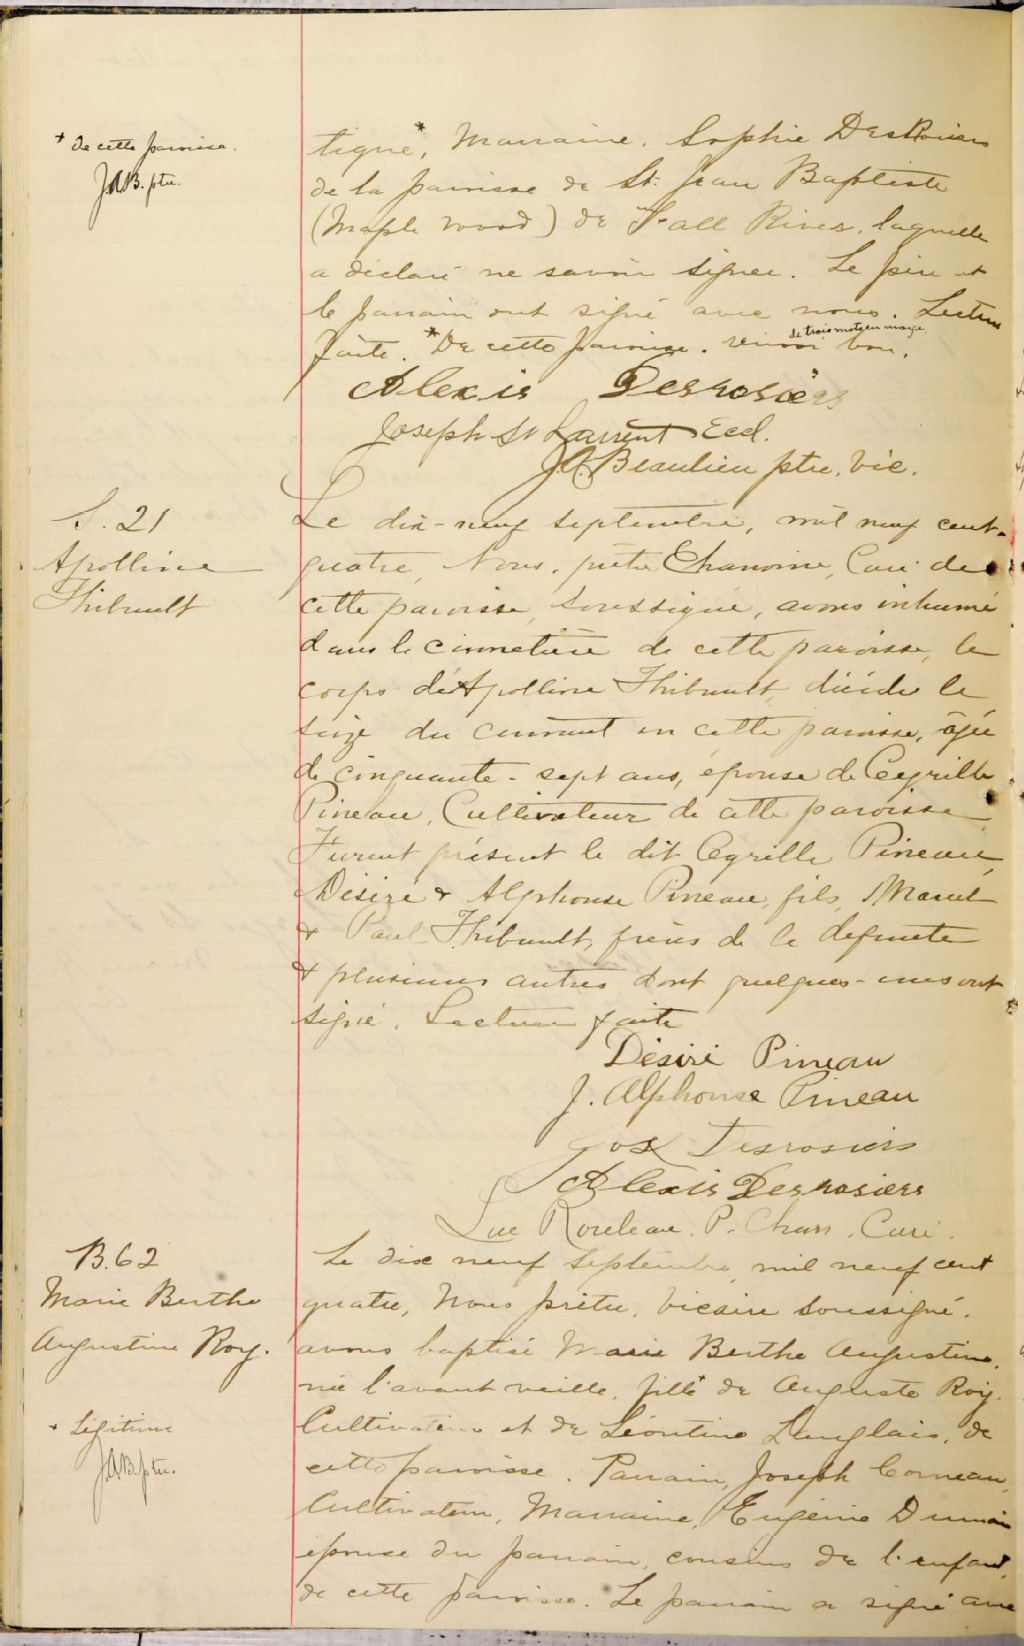 + de cette paroisse.
J.A.B. ptre.
tique,* Marraine, Sophie DesRosiers
de la paroisse de St. Jean Baptiste
(Maple Wood) de Fall River, laquelle
a déclaré ne savoir signer. Le père et
le parrain ont signé avec nous. Lecture
faite. *De cette paroisse. renvoi de trois mots en marge bon.
Alexis Desrosiers
Joseph St Laurent Eccl.
J.A. Beaulieu ptre. vic.
S. 21
Apolline
Thibault
Le dix-neuf Septembre, mil neuf cent-
quatre, Nous, prêtre Chanoine, Curé de
cette paroisse, soussigné, avons inhumé
dans le cimetière de cette paroisse, le
corps d'Apolline Thibault, décédée le
seize du courant en cette paroisse, âgée
de cinquante-sept ans, épouse de Cyrille
Pineau, Cultivateur de cette paroisse
Furent présent le dit Cyrille Pineau,
Désiré & Alphonse Pineau, fils, Marcel
& Paul Thibault, frères de la defunte
& plusieurs autres dont quelques-uns ont
signé. Lecture faite
Désiré Pineau
J. Alphonse Pineau
Jos Desrosiers
Alexis Desrosiers
Luc Rouleau. P. Chan. Curé.
B.62
Marie Berthe
Augustine Roy.
+ Légitime
J.A.B. ptre.
Le dix neuf Septembre, mil neuf cent
quatre, Nous prêtre, vicaire soussigné,
avons baptisé Marie Berthe Augustine,
née l'avant veille, fille+ de Auguste Roy,
Cultivateur et de Léontine Langlais, de
cette paroisse. Parrain, Joseph Corneau,
Cultivateur, Marraine, Eugénie Dumais
épouse du parrain, cousins de l'enfant,
de cette paroisse. Le parrain a signé avec